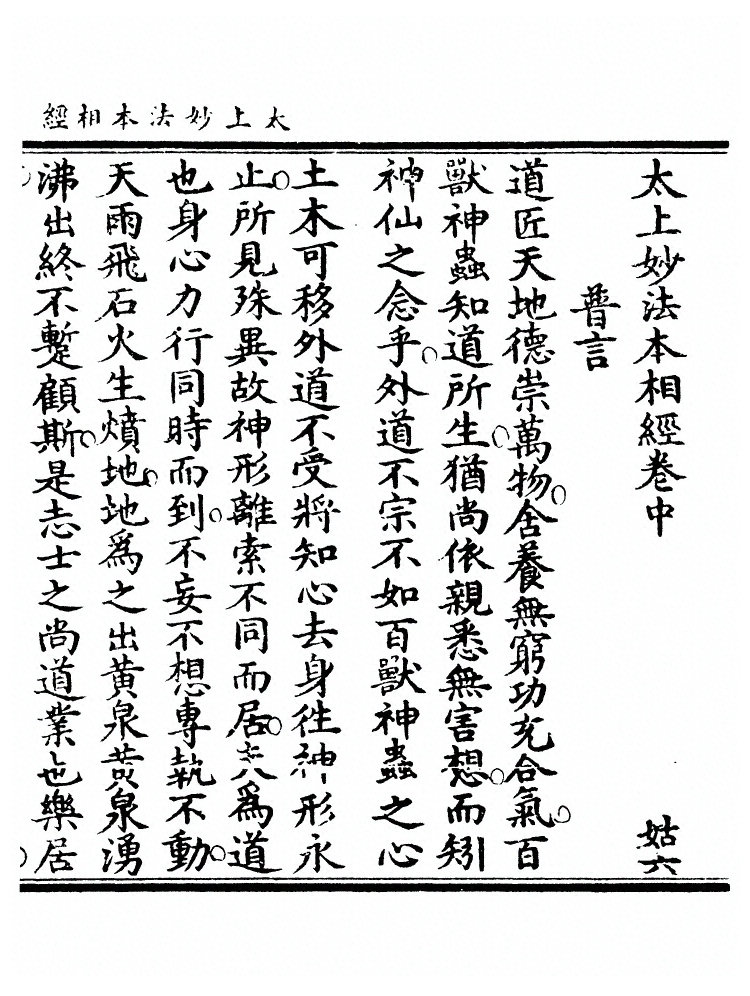 太上妙法本相經
太上妙法本相經卷中 姑六
普言
道匠天地德崇萬物。含養無窮功充合氣。百
獸神蟲知道所生。猶尚依親悉無害想。而矧
神仙之念乎。外道不宗不如百獸神蟲之心
土木可移外道不受將知心去身徃神形永
止。所見殊異故神形離索不同而居。夫為道
也身心力行同時而到。不妄不想專執不動。
天雨飛石火生燌地。地為之出黄泉黄泉湧
沸出終不蹔顧斯。是志士之尚道業也樂居